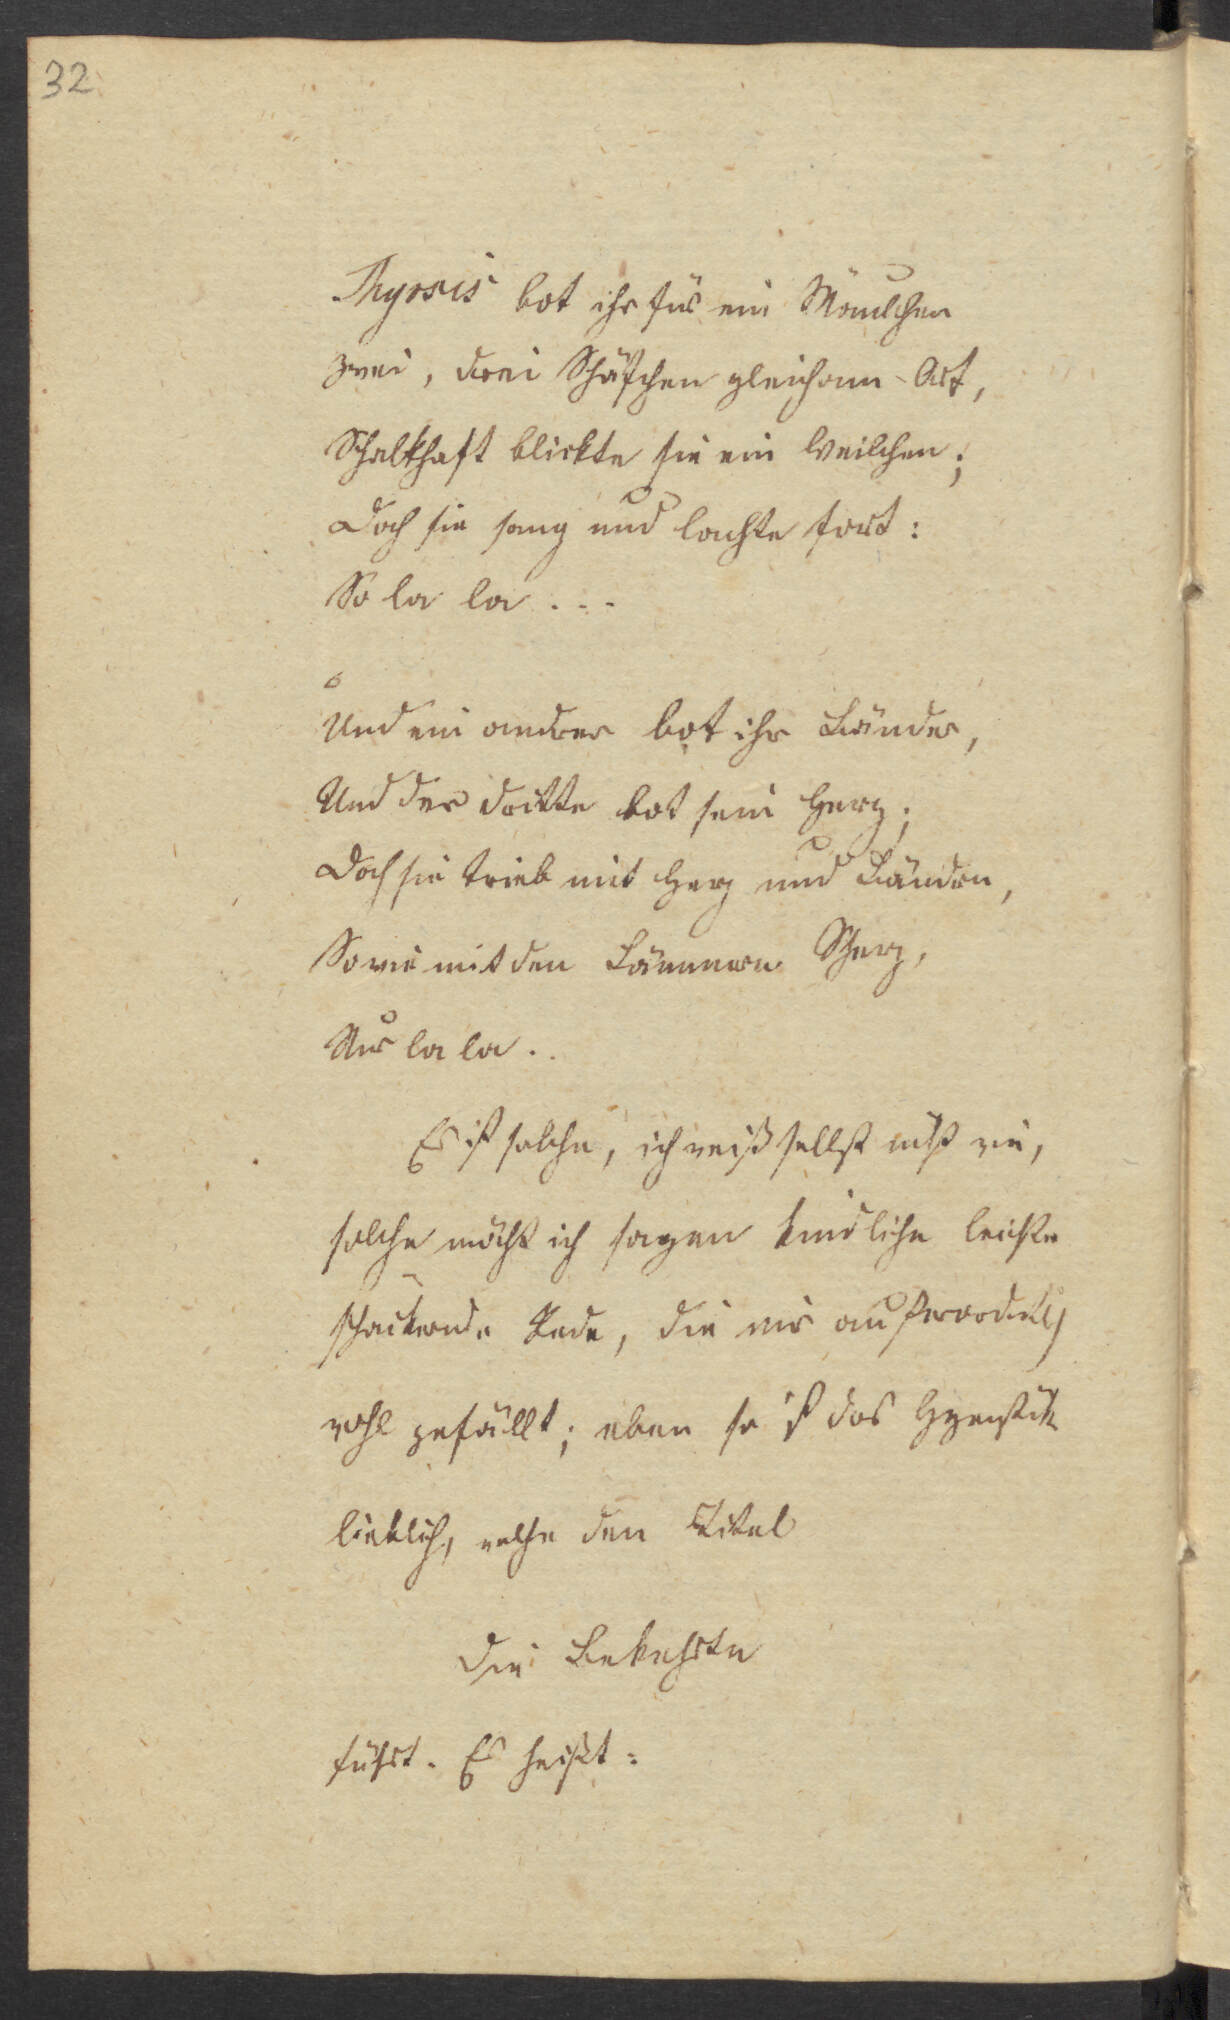 32
Thyrsis bot ihr für ein Mäulchen
Zwei, drei Schäfchen gleich am Ort,
Schalkhaft blickte sie ein Weilchen;
Doch sie sang und lachte fort:
So la la . . .
Und ein andrer bot ihr Bänder,
Und der dritte bot sein Herz;
Doch sie trieb mit Herz und Bändern,
So wie mit den Lämmern Scherz,
Nur la la . .
Es ist solche, ich weiß selbst nicht wie,
solche möcht ich sagen kindliche leichte
schäckernde Rede, die mir außerordentlich
wohl gefällt; eben so ist das Gegenstück
lieblich, welche den Titel
Die Bekehrte
führt. Es heißt: